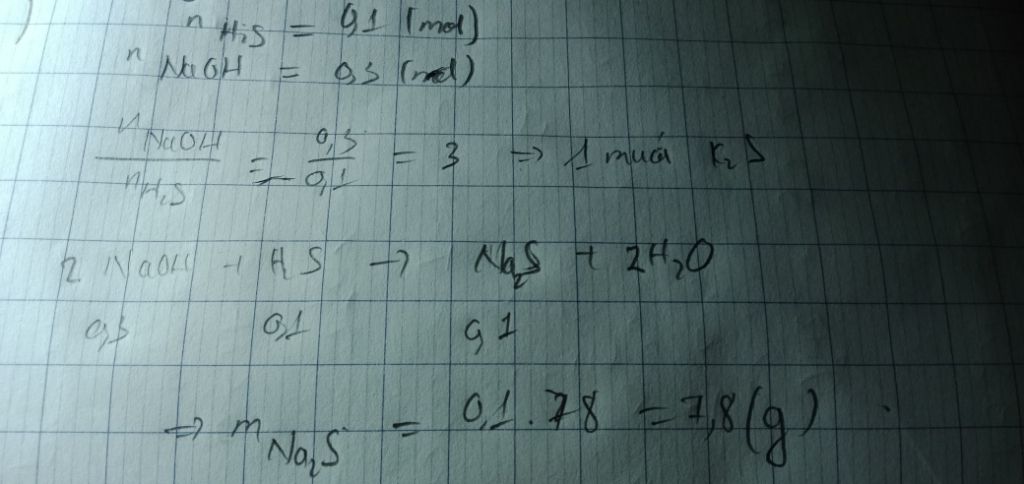 ) n H₂S = 0,1 (mol)
n NaOH = 0,3 (mol)
nNaOH / nH₂S = 0,3 / 0,1 = 3 => 1 muối K₂S
2 NaOH + H₂S → Na₂S + 2H₂O
0,3 0,1 0,1
=> m Na₂S = 0,1 . 78 = 7,8 (g)